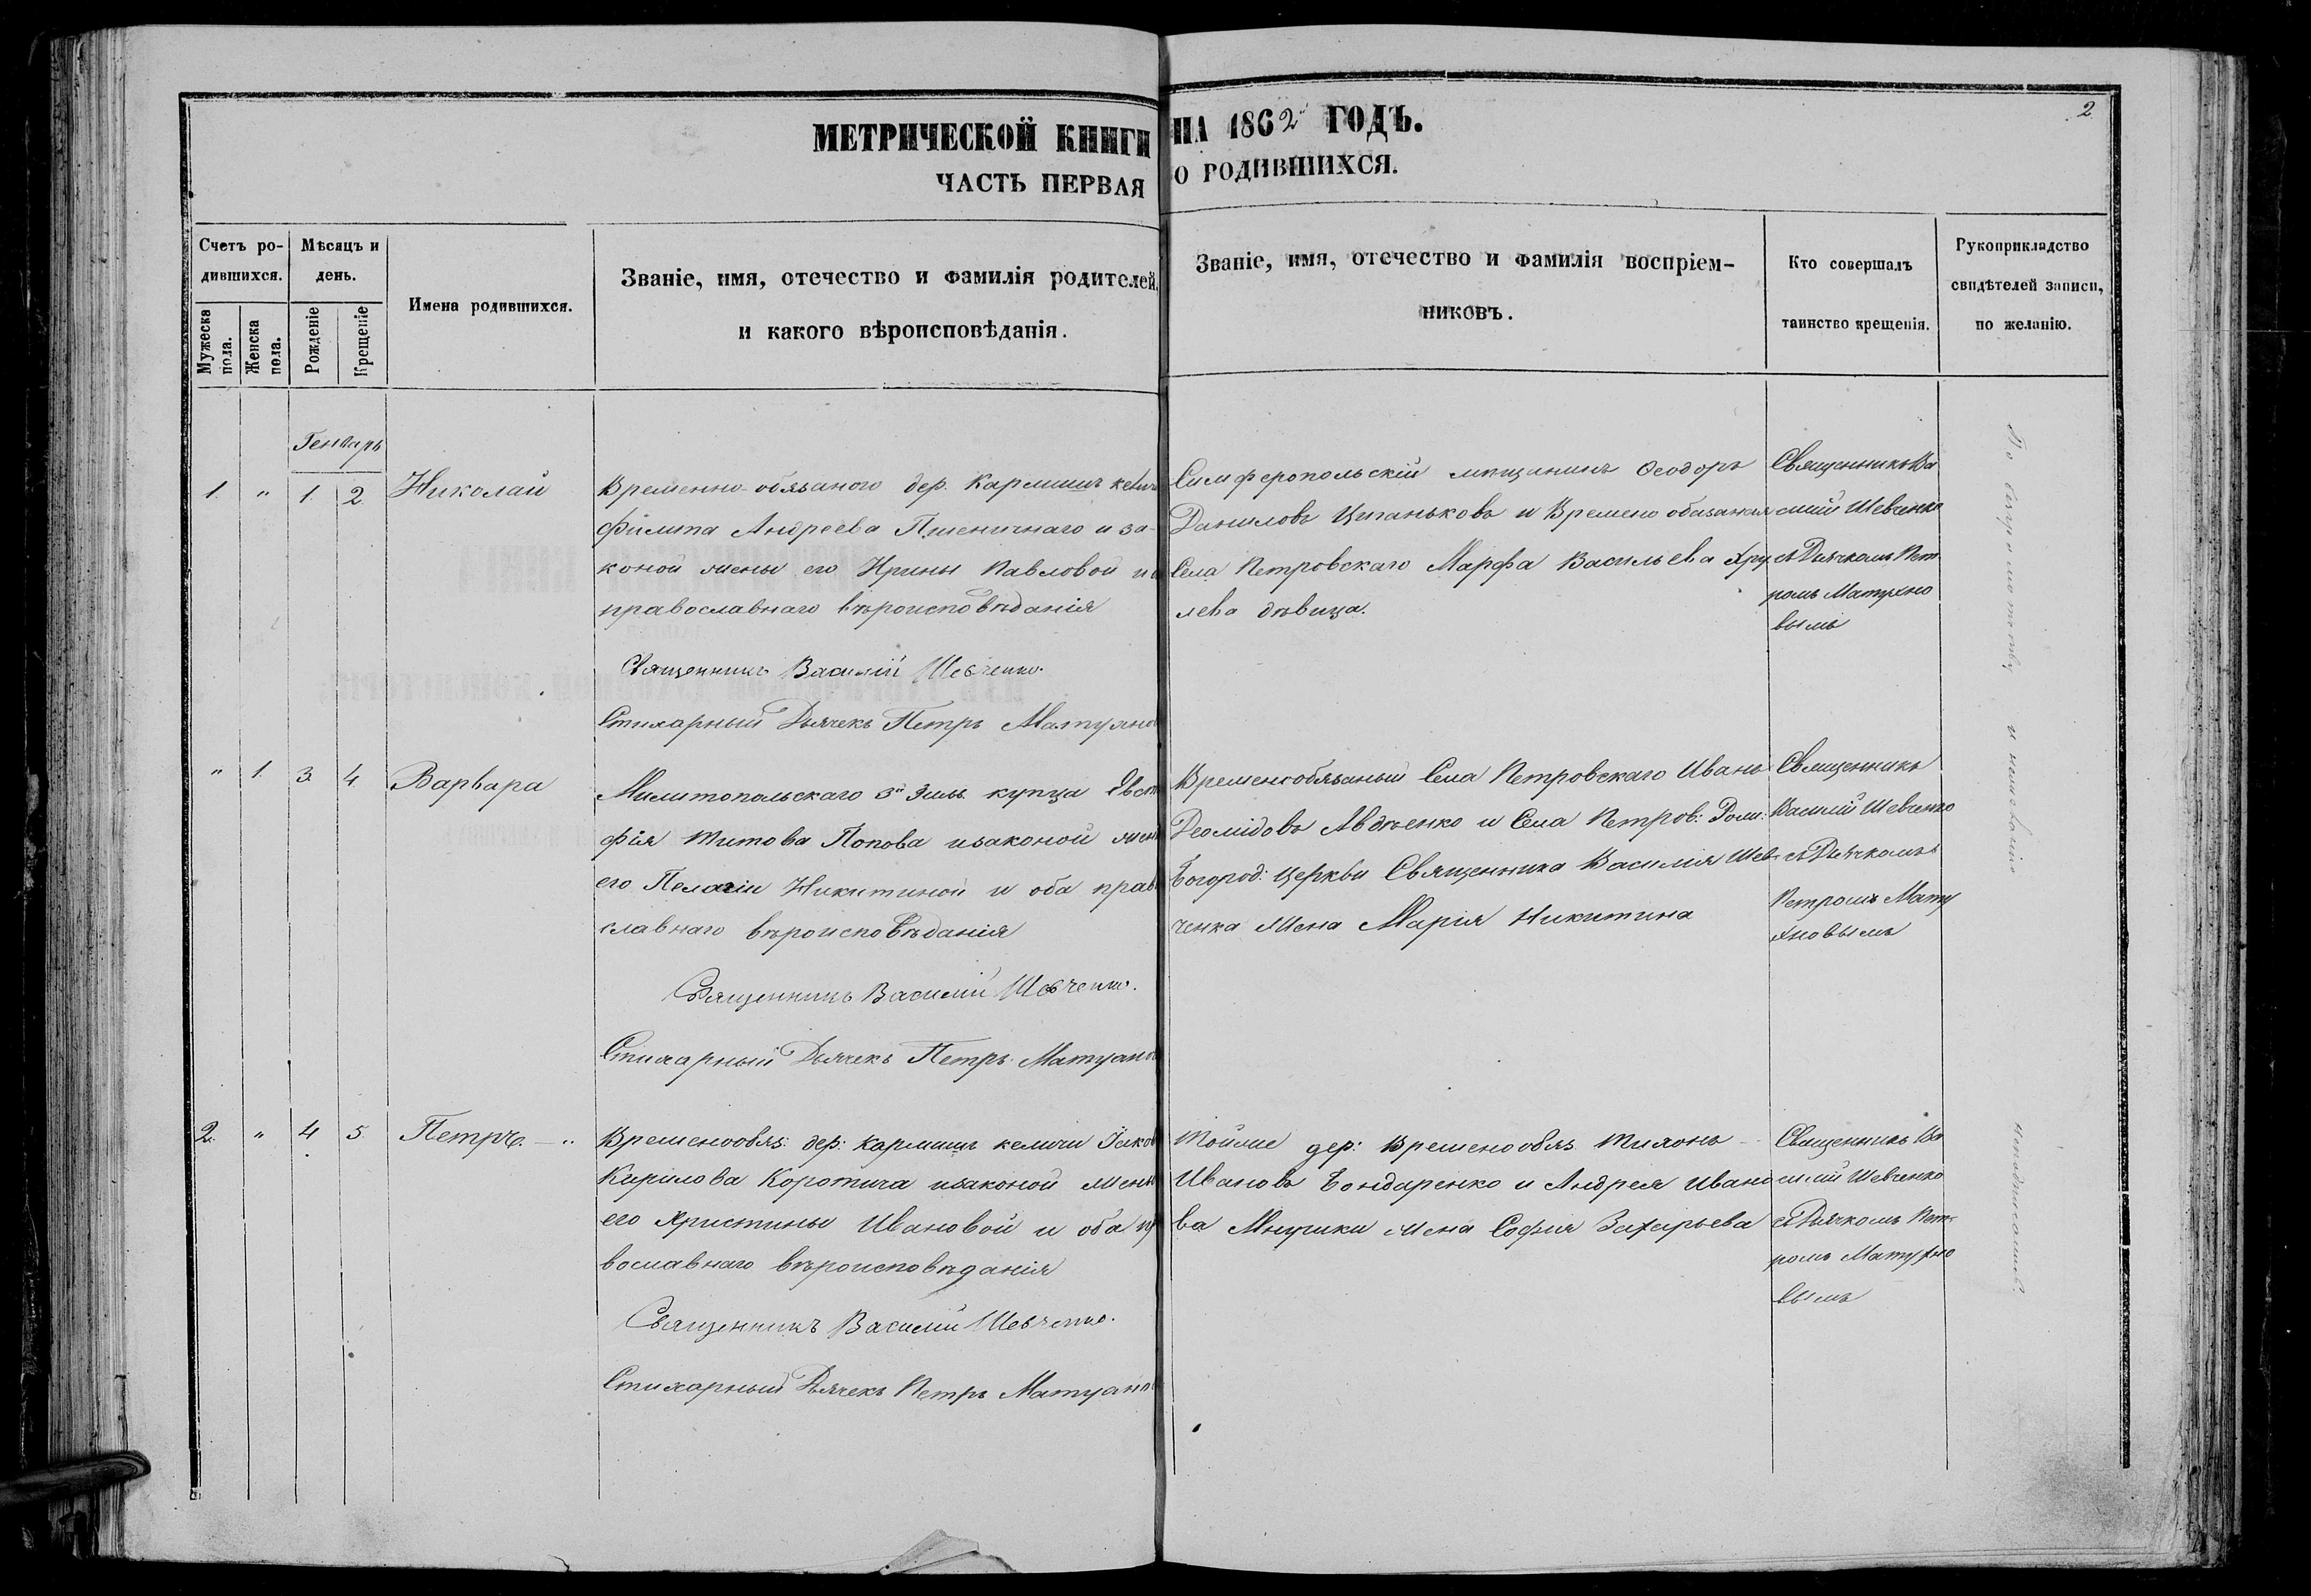 МЕТРИЧЕСКОЙ КНИГИ НА 1862й ГОДЪ.
2
ЧАСТЬ ПЕРВАЯ О РОДИВШИХСЯ.
Счетъ ро-
дившихся.
Мужеска
пола.
Женска
пола.
Мѣсяцъ и
день.
Рожденіе
Крещеніе
Имена родившихся.
Званіе, имя, отечество и фамилія родителей,
и какого вѣроисповѣданія.
Званіе, имя, отечество и фамилія воспріем-
никовъ.
Кто совершалъ
таинство крещенія.
Рукоприкладство
свидѣтелей записи,
по желанію.
Генварь
1. " 1. 2 Николай
Временно-обязаного дер. Кармишъ
Филипа Андреева Пшеничнаго и за-
коной жены его Ирины Павловой
православнаго вѣроисповѣданія
Священникъ Василій Шевченко.
Стихарный Дьячекъ Петръ
Симферопольскій мѣщанинъ Ѳеодоръ
Даниловъ Цыганьковъ и Времено обязаная
села Петровскаго Марфа Васильева Хру
лева дѣвица.
Священникъ Ва
силій Шевченко
съ Дьячкомъ Пет
ромъ Матухно
вымъ
" 1. 3. 4 Варвара
Милитопольскаго 3й Гиль. купца
фія Титова Попова изаконой
его Пелагіи Никитиной и оба
славнаго вѣроисповѣданія
Священникъ Василій Шевченко.
Стихарный Дьячекъ Петръ
Временобязаный Села Петровскаго Иванъ
Деомідовъ Авдѣенко и Села Петров:
Богород: церкви Священника Василія Шев-
ченка жена Марія Никитина
Священникъ
Василій Шевченко
съ Дьячкомъ
Петромъ Мату
хновымъ
2. " 4 5. Петръ. — "
Временообяз: дер: Кармишъ келичи
Кирилова Коротича изаконой
его Христины Ивановой и оба
вославнаго вѣроисповѣданія
Священникъ Василій Шевченко.
Стихарный Дьячекъ Петръ
Тойже дер: Временообяз. Тихонъ
Ивановъ Бондаренко и Андрея Ивано
ва жена Софія Захарьева
Священникъ Ва
силій Шевченко
съ Дьячкомъ Пет-
ромъ Матухно
вымъ
По безграмотству